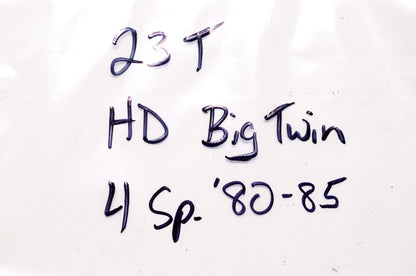 23T
HD Big Twin
4 Sp. '80-85